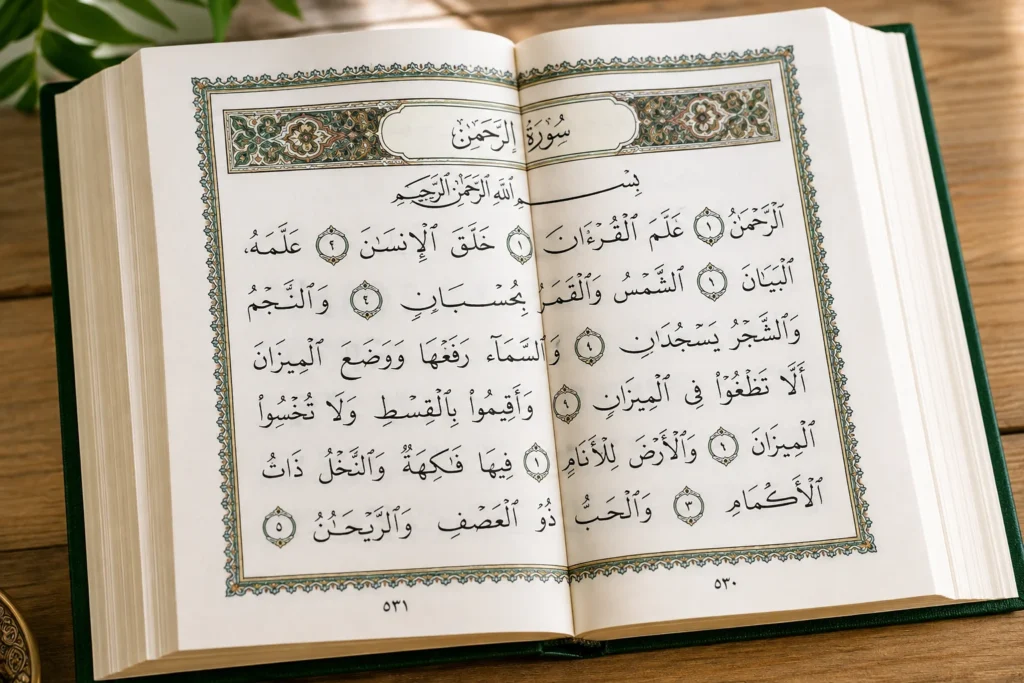 سُورَةُ الرَّحْمَٰن
بِسْمِ اللَّهِ الرَّحْمَٰنِ الرَّحِيمِ
الرَّحْمَٰنُ ١ عَلَّمَ الْقُرْءَانَ ١ خَلَقَ الْإِنسَٰنَ ٢ عَلَّمَهُ،
الْبَيَانَ ١ الشَّمْسُ وَالْقَمَرُ بِحُسْبَانٍ ٢ وَالنَّجْمُ
وَالشَّجَرُ يَسْجُدَانِ ٩ وَالسَّمَآء رَفَعْهَا وَوَضَعَ الْمِيزَانَ
أَلَّا تَظْغُوْا فِى الْمِيزَانِ ٩ وَأَقِيمُوا بِالْقِسْطِ وَلَا تُخْسُوا
الْمِيزَانَ ٩ وَالْأَرْضَ لِلْأَنَامِ ١ فِيهَا فَاكِهَةٌ وَالنَّخْلُ ذَاتُ
الْأَكْمَامِ ٣ وَالْحَبُّ ذُو الْعَصْفِ وَالرَّيْحَٰنُ ٥
٥٣٠
٥٣١